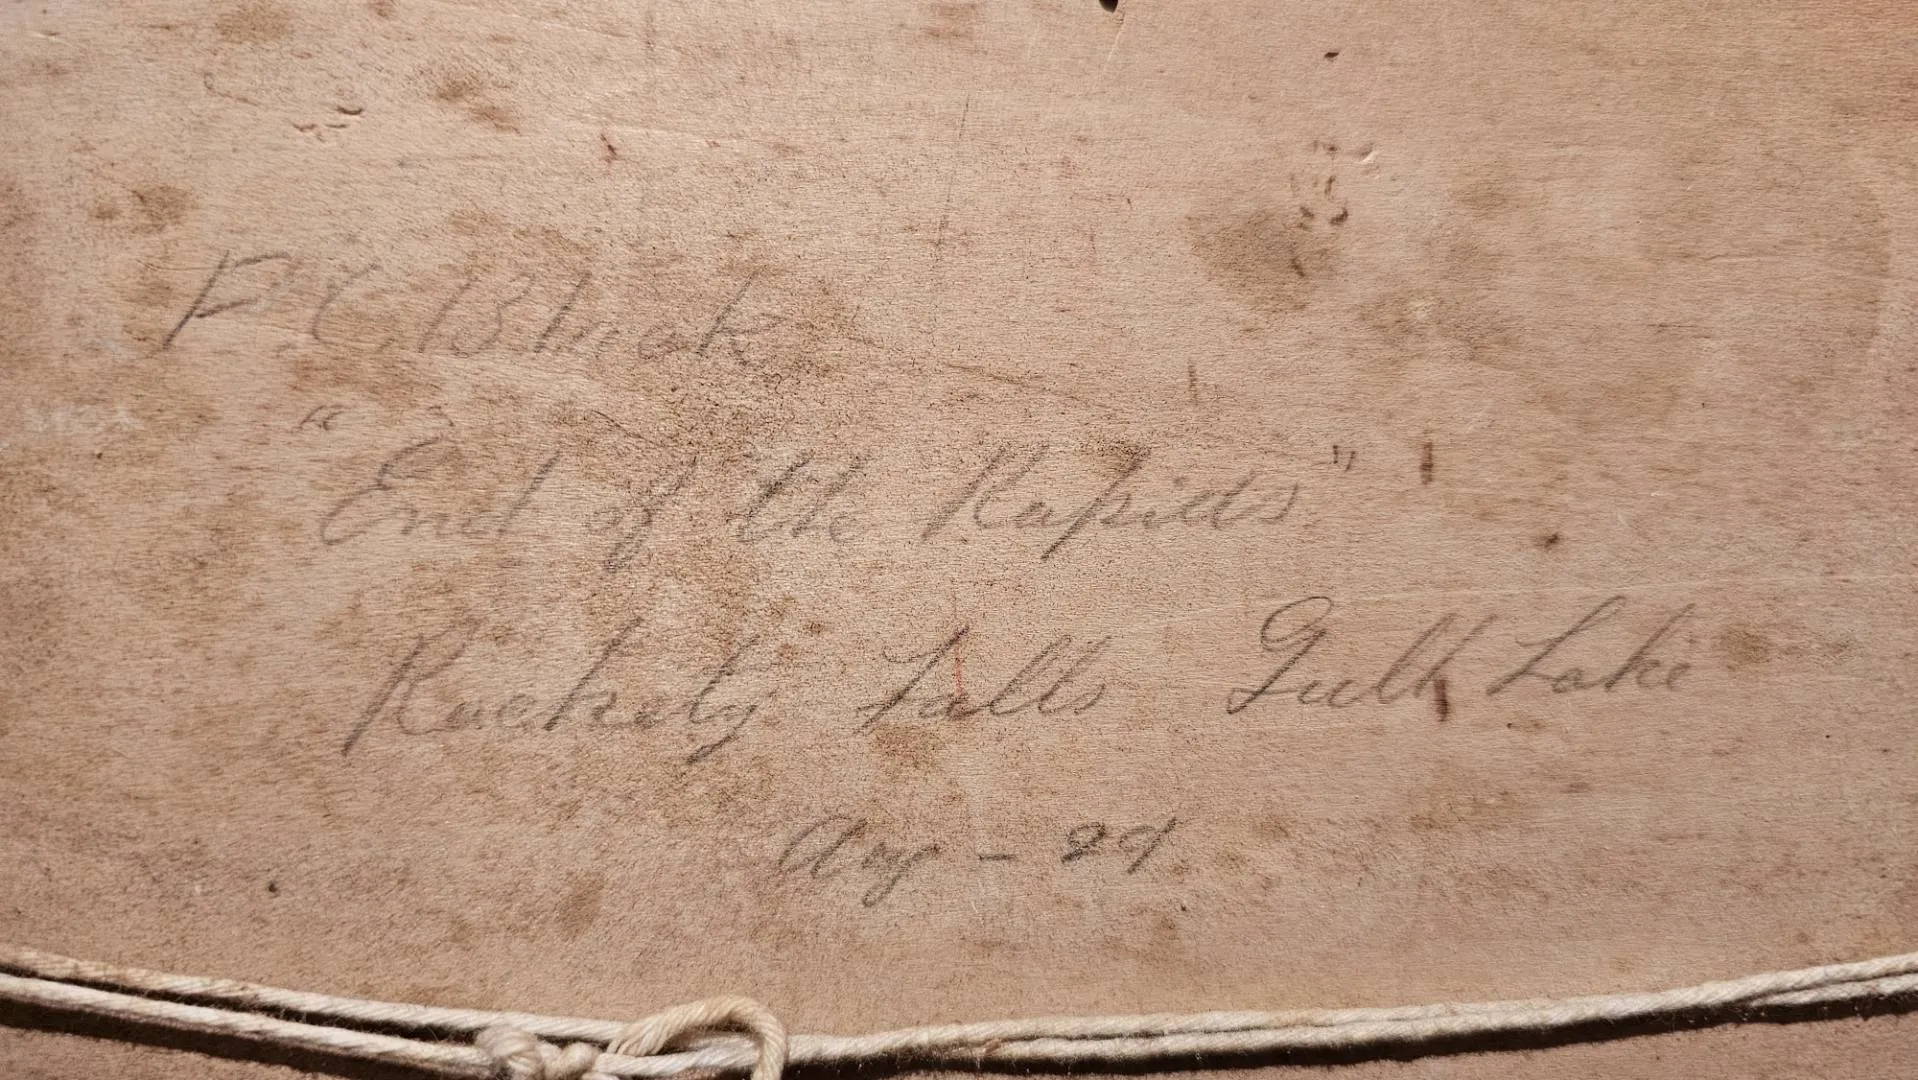 F. C. Black
"End of the Rapids"
Rackety Falls Gull Lake
Aug - 29